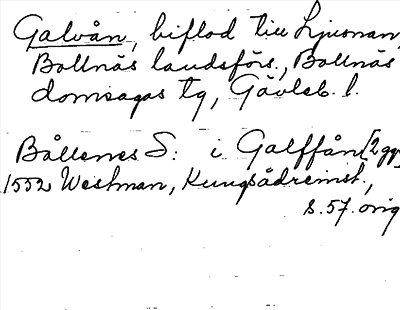 Galvån, biflod till Ljusnan,
Bollnäs landsförs., Bollnäs
domsagas tg, Gävleb. l.
Bållenes S: i Galffån [2 gg]
1552 Westman, Kungsådreinst.,
s. 57. orig